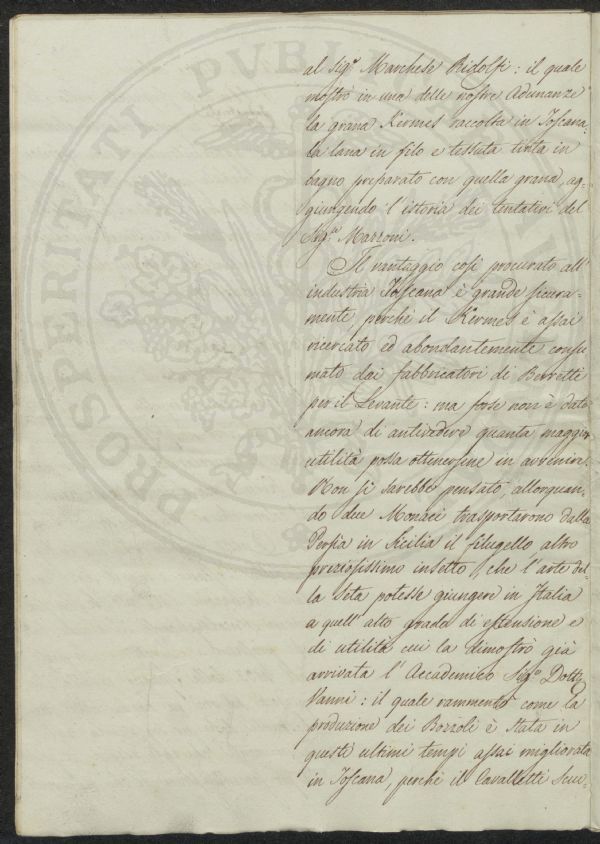 PROSPERITATI PVBLI
al Sig.r Marchese Ridolfi: il quale
mostrò in una delle nostre Adunanze
la grana Kermes raccolta in Toscana
la lana in filo e tessuta tinta in
bagno preparato con quella grana, ag=
giungendo l'istoria dei tentativi del
Sig.r Marzoni.
Il vantaggio così procurato all'
industria Toscana è grande sicura=
mente perchè il Kermes è assai
ricercato ed abondantemente consu
mato dai fabbricatori di Berretti
per il Levante: ma forse non è dato
ancora di antivedere quanta maggior
utilità possa ottenersine in avvenire.
Non si sarebbe pensato, allorquan=
do due Monaci trasportarono dalla
Persia in Sicilia il filugello altro
preziosissimo insetto, che l'arte del=
la Seta potesse giungere in Italia
a quell'alto grado di estensione e
di utilità cui la dimostrò già
arrivata l'Accademico Sig.r Dott.r
Vanni: il quale rammentò come la
produzione dei Bozzoli è stata in
questi ultimi tempi assai migliorata
in Toscana, perchè il Cavalletti Scu=